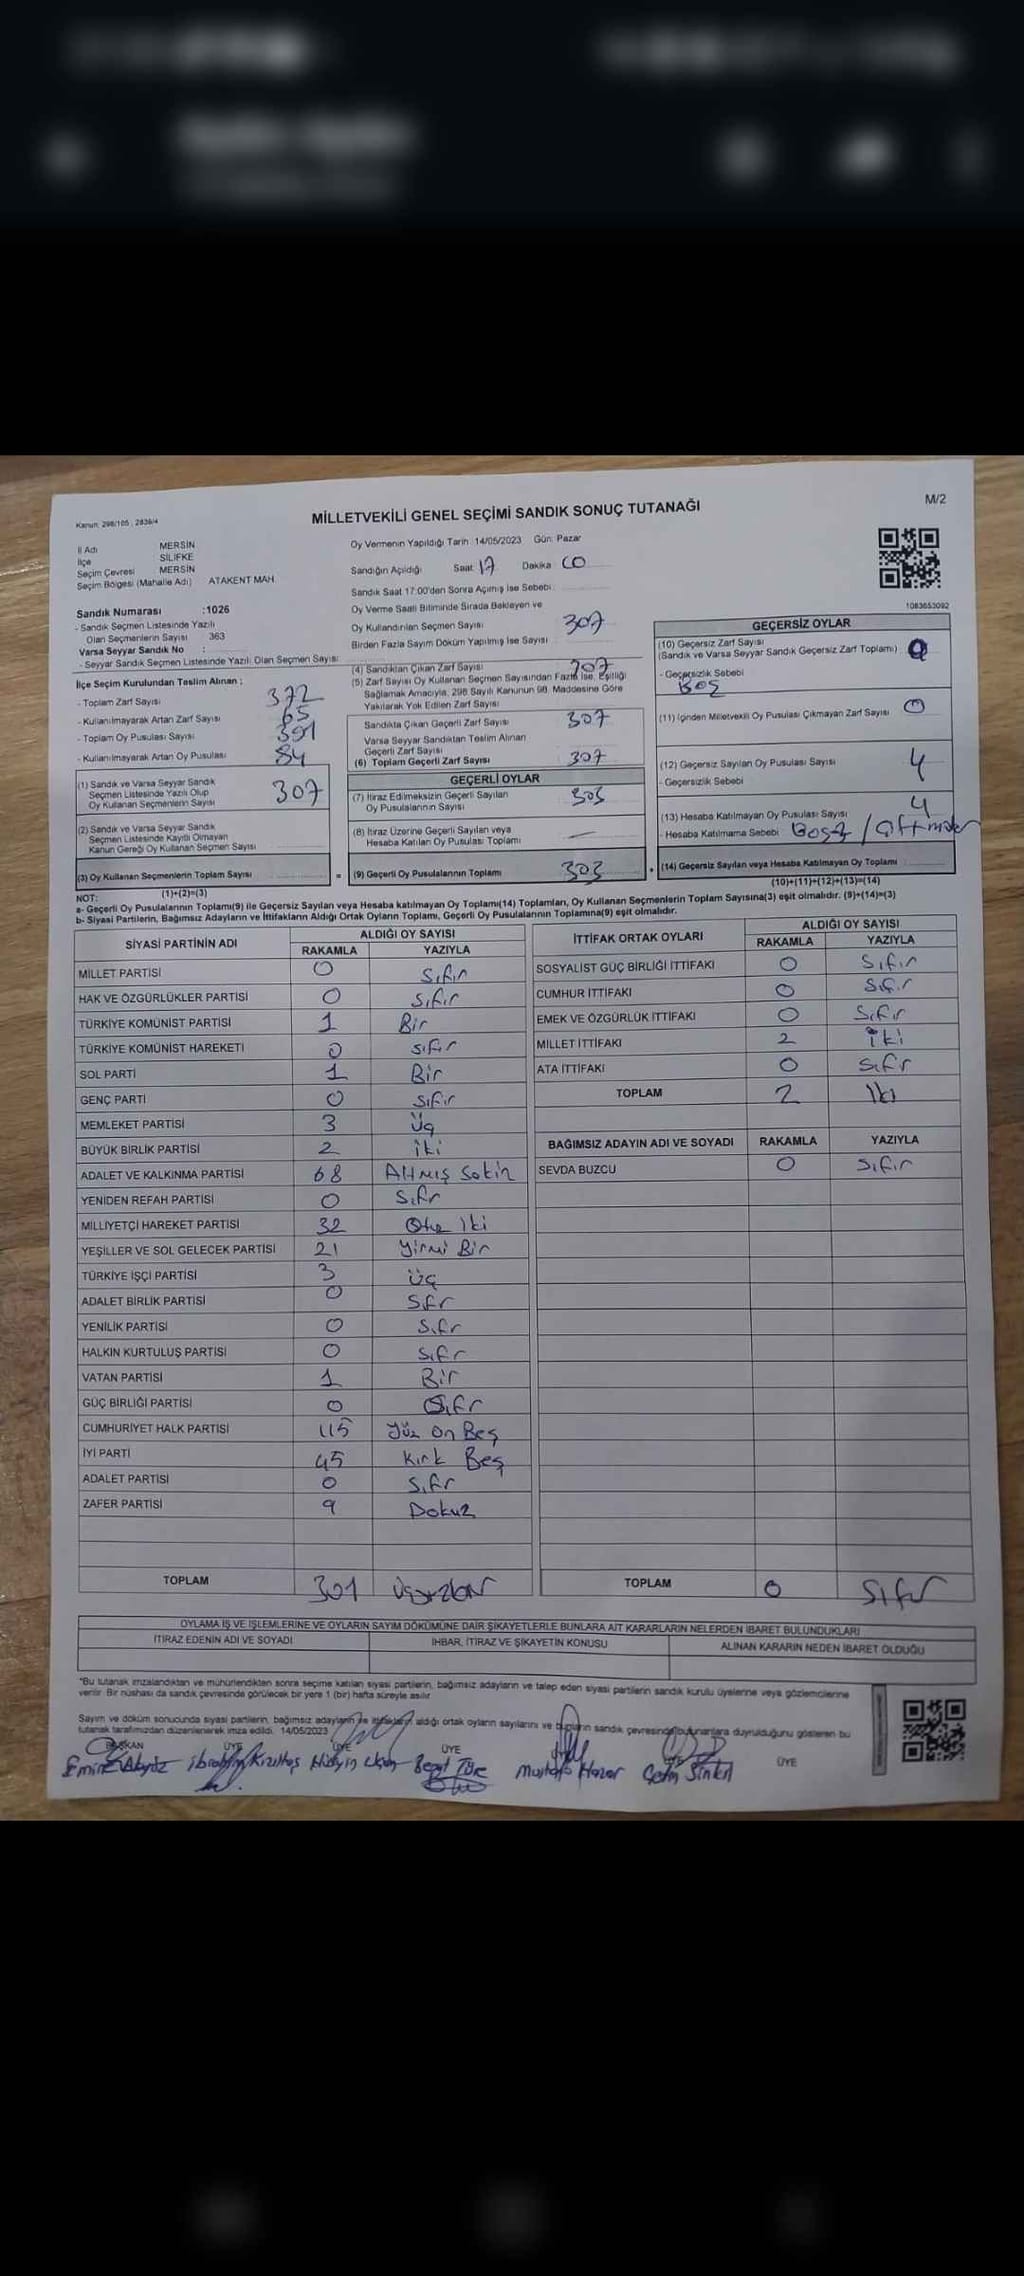 Kanun: 298/105, 2839/4
MİLLETVEKİLİ GENEL SEÇİMİ SANDIK SONUÇ TUTANAĞI
M/2
İl Adı MERSİN
İlçe SİLİFKE
Seçim Çevresi MERSİN
Seçim Bölgesi (Mahalle Adı) ATAKENT MAH.
Sandık Numarası :1026
- Sandık Seçmen Listesinde Yazılı
Olan Seçmenlerin Sayısı 363
Varsa Seyyar Sandık No :
- Seyyar Sandık Seçmen Listesinde Yazılı Olan Seçmen Sayısı
İlçe Seçim Kurulundan Teslim Alınan :
- Toplam Zarf Sayısı 372
- Kullanılmayarak Artan Zarf Sayısı 65
- Toplam Oy Pusulası Sayısı 391
- Kullanılmayarak Artan Oy Pusulası 84
(1) Sandık ve Varsa Seyyar Sandık
Seçmen Listesinde Yazılı Olup
Oy Kullanan Seçmenlerin Sayısı 307
(2) Sandık ve Varsa Seyyar Sandık
Seçmen Listesinde Kayıtlı Olmayan
Kanun Gereği Oy Kullanan Seçmen Sayısı
(3) Oy Kullanan Seçmenlerin Toplam Sayısı =
(1)+(2)=(3)
Oy Vermenin Yapıldığı Tarih: 14/05/2023 Gün: Pazar
Sandığın Açıldığı Saat 17 Dakika 00
Sandık Saat 17:00'den Sonra Açılmış İse Sebebi:
Oy Verme Saati Bitiminde Sırada Bekleyen ve
Oy Kullandırılan Seçmen Sayısı 307
Birden Fazla Sayım Döküm Yapılmış İse Sayısı
(4) Sandıktan Çıkan Zarf Sayısı 307
(5) Zarf Sayısı Oy Kullanan Seçmen Sayısından Fazla İse, Eşitliği
Sağlamak Amacıyla, 298 Sayılı Kanunun 98. Maddesine Göre
Yakılarak Yok Edilen Zarf Sayısı
Sandıkta Çıkan Geçerli Zarf Sayısı 307
Varsa Seyyar Sandıktan Teslim Alınan
Geçerli Zarf Sayısı
(6) Toplam Geçerli Zarf Sayısı 307
GEÇERLİ OYLAR
(7) İtiraz Edilmeksizin Geçerli Sayılan
Oy Pusulalarının Sayısı 303
(8) İtiraz Üzerine Geçerli Sayılan veya
Hesaba Katılan Oy Pusulası Toplamı —
(9) Geçerli Oy Pusulalarının Toplamı 303 +
1083653092
GEÇERSİZ OYLAR
(10) Geçersiz Zarf Sayısı
(Sandık ve Varsa Seyyar Sandık Geçersiz Zarf Toplamı)
- Geçersizlik Sebebi
Boş
(11) İçinden Milletvekili Oy Pusulası Çıkmayan Zarf Sayısı 0
(12) Geçersiz Sayılan Oy Pusulası Sayısı 4
- Geçersizlik Sebebi
(13) Hesaba Katılmayan Oy Pusulası Sayısı 4
- Hesaba Katılmama Sebebi
(14) Geçersiz Sayılan veya Hesaba Katılmayan Oy Toplamı
(10)+(11)+(12)+(13)=(14)
NOT:
a- Geçerli Oy Pusulalarının Toplamı(9) ile Geçersiz Sayılan veya Hesaba katılmayan Oy Toplamı(14) Toplamları, Oy Kullanan Seçmenlerin Toplam Sayısına(3) eşit olmalıdır. (9)+(14)=(3)
b- Siyasi Partilerin, Bağımsız Adayların ve İttifakların Aldığı Ortak Oyların Toplamı, Geçerli Oy Pusulalarının Toplamına(9) eşit olmalıdır.
SİYASİ PARTİNİN ADI ALDIĞI OY SAYISI
RAKAMLA YAZIYLA
MİLLET PARTİSİ 0 Sıfır
HAK VE ÖZGÜRLÜKLER PARTİSİ 0 Sıfır
TÜRKİYE KOMÜNİST PARTİSİ 1 Bir
TÜRKİYE KOMÜNİST HAREKETİ 0 sıfır
SOL PARTİ 1 Bir
GENÇ PARTİ 0 sıfır
MEMLEKET PARTİSİ 3 Üç
BÜYÜK BİRLİK PARTİSİ 2 iki
ADALET VE KALKINMA PARTİSİ 68 Altmış Sekiz
YENİDEN REFAH PARTİSİ 0 Sıfır
MİLLİYETÇİ HAREKET PARTİSİ 32 Otuz İki
YEŞİLLER VE SOL GELECEK PARTİSİ 21 Yirmi Bir
TÜRKİYE İŞÇİ PARTİSİ 3 üç
ADALET BİRLİK PARTİSİ 0 Sıfır
YENİLİK PARTİSİ 0 Sıfır
HALKIN KURTULUŞ PARTİSİ 0 Sıfır
VATAN PARTİSİ 1 Bir
GÜÇ BİRLİĞİ PARTİSİ 0 Sıfır
CUMHURİYET HALK PARTİSİ 115 Yüz On Beş
İYİ PARTİ 45 Kırk Beş
ADALET PARTİSİ 0 Sıfır
ZAFER PARTİSİ 9 Dokuz
TOPLAM 301
İTTİFAK ORTAK OYLARI ALDIĞI OY SAYISI
RAKAMLA YAZIYLA
SOSYALİST GÜÇ BİRLİĞİ İTTİFAKI 0 Sıfır
CUMHUR İTTİFAKI 0 Sıfır
EMEK VE ÖZGÜRLÜK İTTİFAKI 0 Sıfır
MİLLET İTTİFAKI 2 iki
ATA İTTİFAKI 0 Sıfır
TOPLAM 2 İki
BAĞIMSIZ ADAYIN ADI VE SOYADI RAKAMLA YAZIYLA
SEVDA BUZCU 0 Sıfır
TOPLAM 0 Sıfır
OYLAMA İŞ VE İŞLEMLERİNE VE OYLARIN SAYIM DÖKÜMÜNE DAİR ŞİKAYETLERLE BUNLARA AİT KARARLARIN NELERDEN İBARET BULUNDUKLARI
İTİRAZ EDENİN ADI VE SOYADI İHBAR, İTİRAZ VE ŞİKAYETİN KONUSU ALINAN KARARIN NEDEN İBARET OLDUĞU
*Bu tutanak imzalandıktan ve mühürlendikten sonra seçime katılan siyasi partilerin, bağımsız adayların ve talep eden siyasi partilerin sandık kurulu üyelerine veya gözlemcilerine
verilir. Bir nüshası da sandık çevresinde görülecek bir yere 1 (bir) hafta süreyle asılır.
Sayım ve döküm sonucunda siyasi partilerin, bağımsız adayların ve ittifakların aldığı ortak oyların sayılarını ve bunların sandık çevresinde bulunanlara duyrulduğunu gösteren bu
tutanak tarafımızdan düzenlenerek imza edildi. 14/05/2023
BAŞKAN ÜYE ÜYE ÜYE ÜYE ÜYE ÜYE